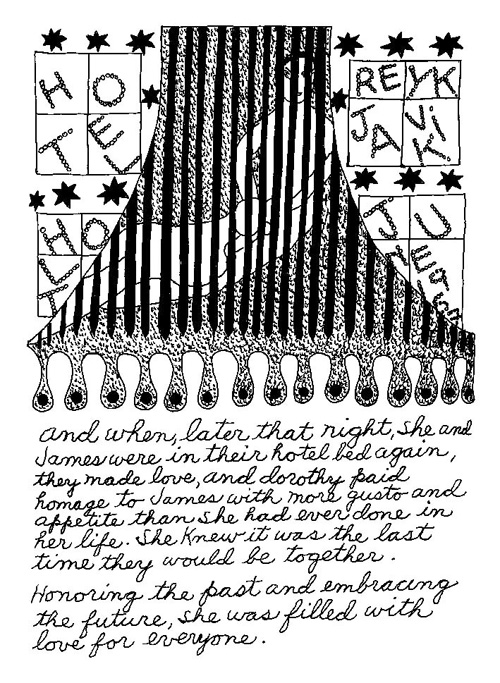 HO
TEL
HO
LT
REYK
JAVIK
JU
and when, later that night, she and
James were in their hotel bed again,
they made love, and dorothy paid
homage to James with more gusto and
appetite than she had ever done in
her life. She knew it was the last
time they would be together.
Honoring the past and embracing
the future, she was filled with
love for everyone.